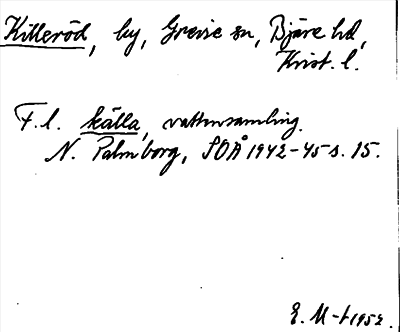 Killeröd, by, Grevie sn, Bjäre hd,
Krist. l.
F.l. källa, vattensamling.
N. Palmborg, SOÅ 1942-45 s. 15.
E. M-t 1952.